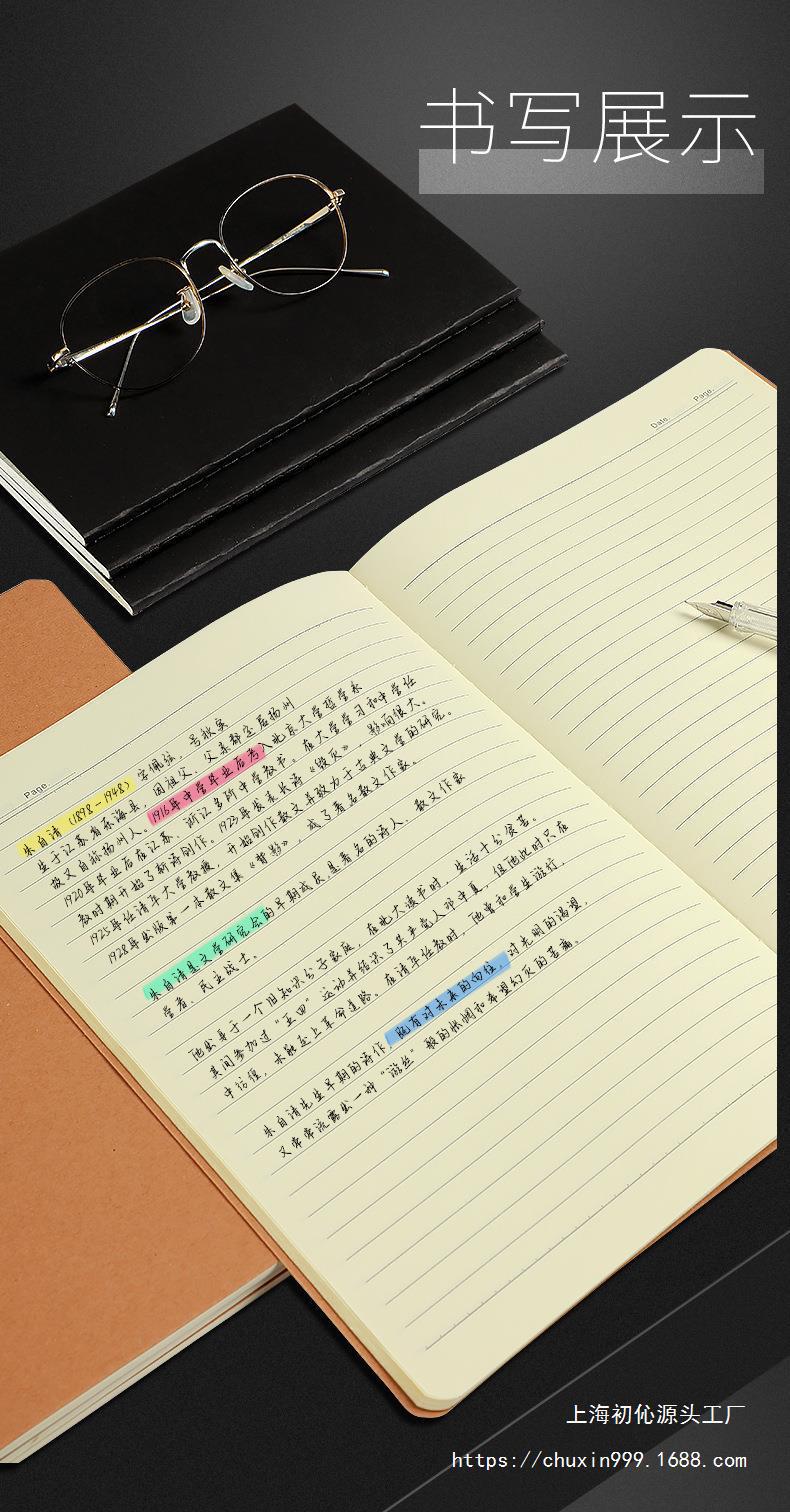 书写展示
Date. Page.
Page.
朱自清（1898-1948）字佩弦，号秋实
生于江苏省东海县，因祖父，父亲都定居扬州
故又自称扬州人。1916年中学毕业后考入北京大学哲学系
1920年毕业后在江苏、浙江多所中学教书。在大学学习和中学任
教时期开始了新诗创作。1923年发表长诗《毁灭》，影响很大。
1925年任清华大学教授，开始创作散文并致力于古典文学的研究。
1928年出版第一本散文集《背影》，成了著名散文作家。
朱自清是文学研究会的早期成员，是著名的诗人、散文作家
学者、民主战士。
他出身于一个旧知识分子家庭，在北大读书时，生活十分贫苦。
其间参加过“五四”运动并结识了共产党人邓中夏，但他此时只在
中彷徨，未能走上革命道路，在清华任教时，他曾和学生游行，
朱自清先生早期的诗作，既有对未来的向往，对光明的渴望，
又常常流露出一种“游丝”般的怅惘和希望幻灭的苦痛。
上海初伈源头工厂
https://chuxin999.1688.com